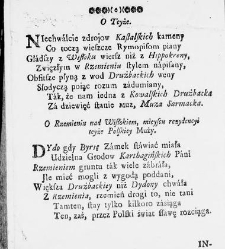 O Teyże.
NIechwálcie zdrojow Kastalskich kameny
Co toczą wieszcze Rymopisom piany
Gładszy z Wisłoku wiersz niż z Hippokreny,
Zwięzłym w Rzemieniu stylem nápisany,
Obfitsze płyną z wod Drużbackich weny
Słodyczą poiąc rozum zádumiany,
Ták, że nam iedna z Kowalskich Drużbacka
Zá dziewięć stánie muz, Muza Sarmacka.
O Rzemieniu nád Wisłokiem, mieyscu rezydencyi
teyże Polskiey Muzy.
DYdo gdy Byrsę Zámek stáwiáć miáłá
Udzielna Grodow Karthagińskich Páni
Rzemieniem gruntu ták wiele zábráłá,
Ile mieć mogli z wygodą poddáni,
Większa Drużbackiey niż Dydony chwałá
Z Rzemienia, rozmiár drogi to, nie táni
Tamten, stáy tylko kilkoro zásiągá
Ten, záś, przez Polski świat sławę rozciąga.
IN-